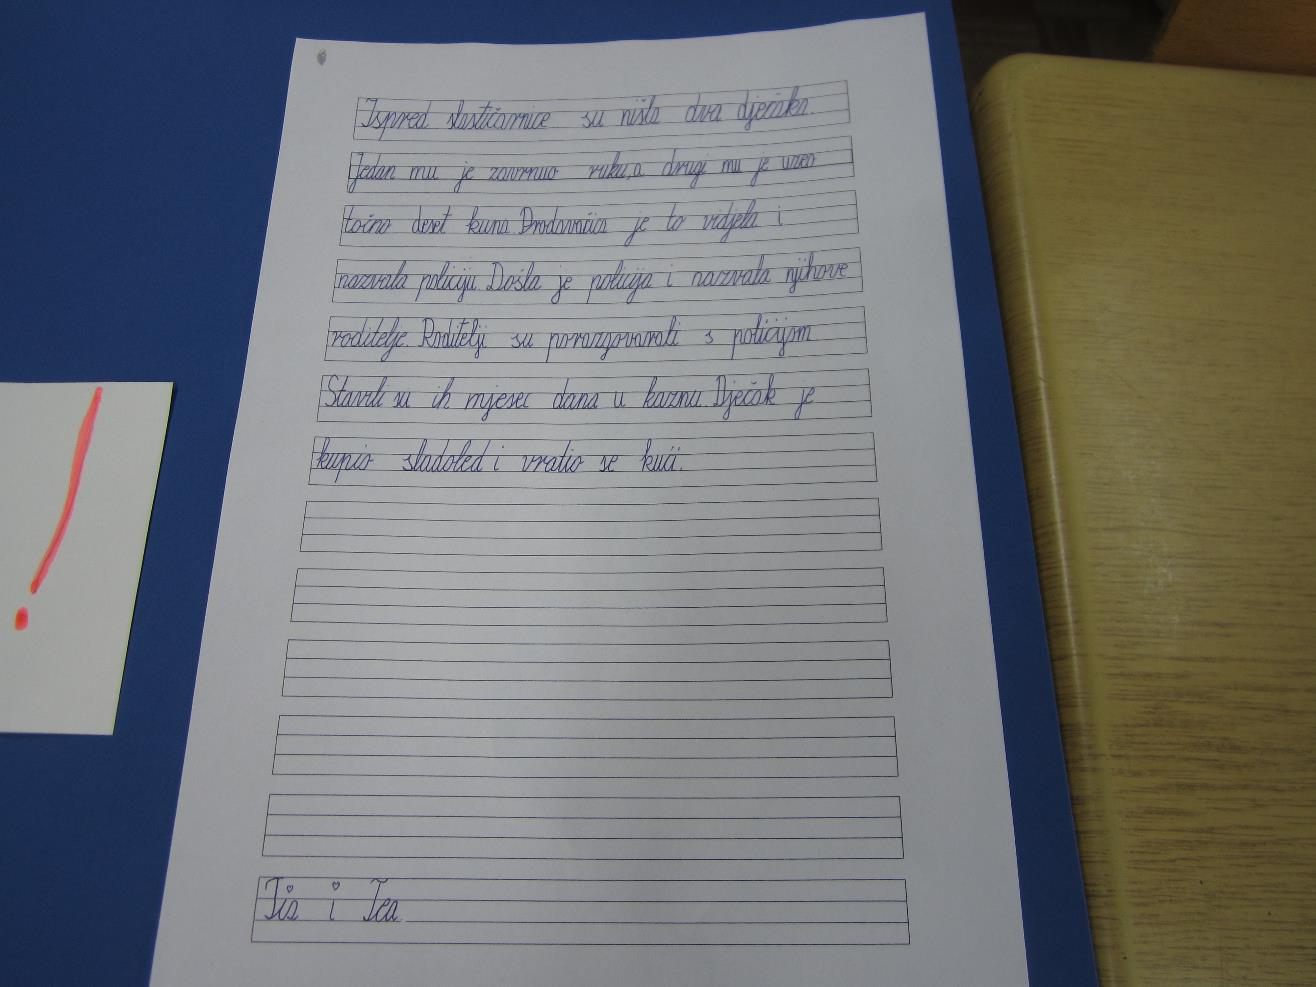 Ispred slastičarnice su nišla dva dječaka.
Jedan mu je zavrnuo ruku,a drugi mu je uzeo
točno deset kuna. Prodavačica je to vidjela i
nazvala policiju. Došla je policija i nazvala njihove
roditelje. Roditelji su porazgovarali s policijom
Stavili su ih mjesec dana u kaznu. Dječak je
kupio sladoled i vratio se kući.
i Tea
!